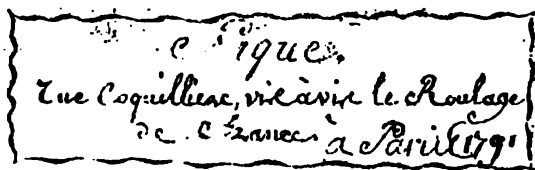 Pique,
rue Coquilliere, vis à vis le Roulage
de France à Paris 1791